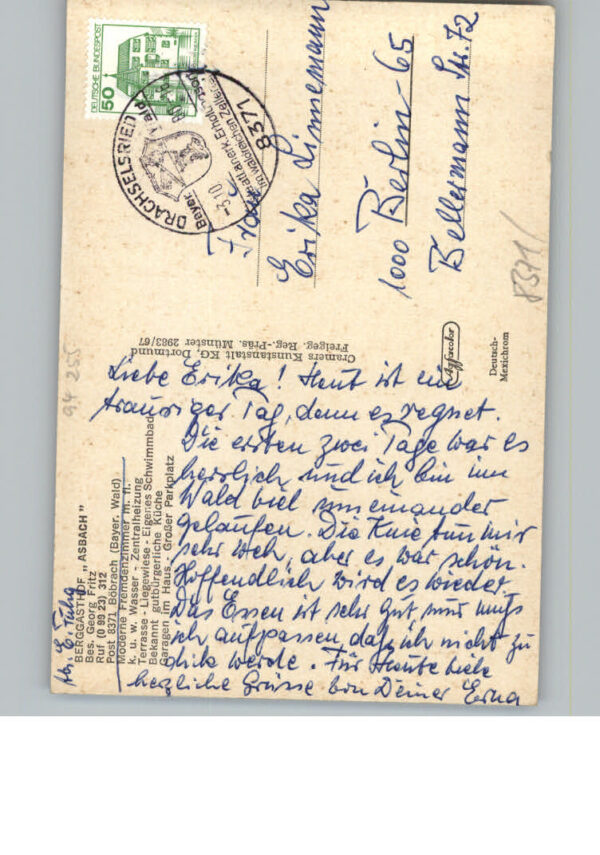 Liebe Erika! Heut ist ein
trauriger Tag, denn es regnet.
Die ersten zwei Tage war es
herrlich und ich bin im
Wald viel umeinander
gelaufen. Die Knie tun mir
sehr weh, aber es war schön.
Hoffendlich wird es wieder.
Das Essen ist sehr gut, nur muß
ich aufpassen daß ich nicht zu
dik werde. Für Heute viele
herzliche Grüsse von Deiner Erna
BERGGASTHOF „ASBACH"
Bes. Georg Fritz
Ruf (0 99 23) 312
Post 8371 Böbrach (Bayer. Wald)
Moderne Fremdenzimmer m. fl.
k. u. w. Wasser - Zentralheizung
Terrasse - Liegewiese - Eigenes Schwimmbad
Bekannt gutbürgerliche Küche
Garagen im Haus - Großer Parkplatz
Cramers Kunstanstalt KG, Dortmund
Freigeg. Reg.-Präs. Münster 2983/67
Agfacolor
Deutsch-
Mexichrom
DEUTSCHE BUNDESPOST
50
8371
DRACHSELSRIED
Bayer. Wald
-3.10
Frau
Erika Linnemann
1000 Berlin-65
Bellermann Str. 72
8371/
94 255